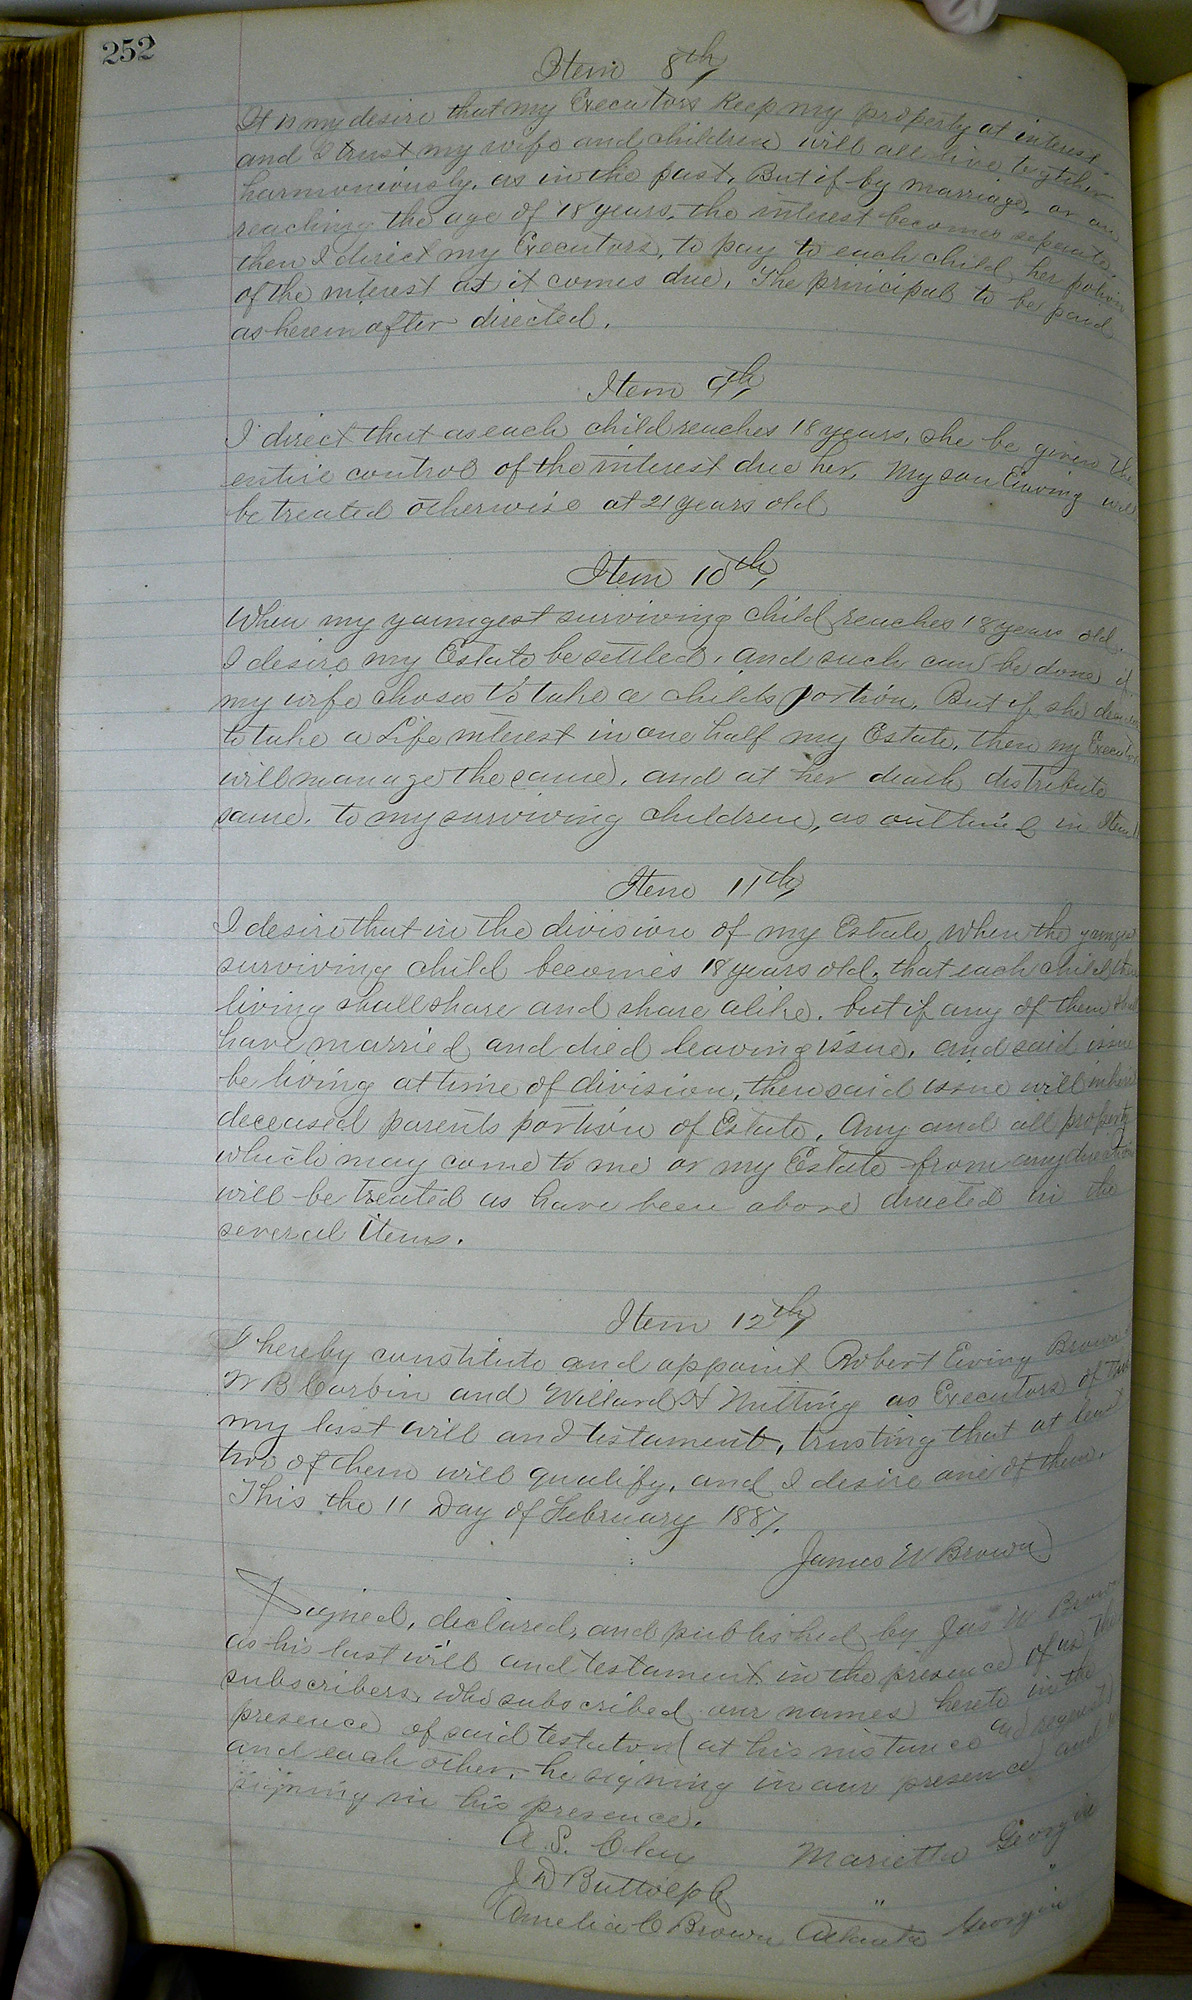 252
Item 8th,
It is my desire that my Executors Keep my property at interest
and I trust my wife and children will all live together
harmoniously, as in the past, But if by marriage, or on
reaching the age of 18 years, the interest becomes seperate,
then I direct my Executors, to pay to each child her potion
of the interest as it comes due, The principal to be paid
as herein after directed.
Item 9th,
I direct that as each child reaches 18 years, she be given the
entire control of the interest due her, My son Ewing will
be treated otherwise at 21 years old
Item 10th,
When my youngest surviving child reaches 18 years old,
I desire my Estate be settled, and such can be done if
my wife choses to take a childs portion, But if she
to take a Life interest in one half my Estate, then my Executors
will manage the same, and at her death distribute
same, to my surviving children, as outlined in Item 11
Item 11th,
I desire that in the division of my Estate, when the youngest
surviving child becomes 18 years old, that each child then
living shall share and share alike, but if any of them shall
have married and died leaving issue, and said issue
be living at time of division, then said issue will inherit
deceased parents portion of Estate, Any and all property
which may come to me or my Estate from any direction
will be treated as have been above directed in the
several items.
Item 12th,
I hereby constitute and appoint Robert Ewing Brown
W B Corbin and Willard H Nutting as Executors of this
my last will and testament, trusting that at least
two of them will qualify, and I desire one of them.
This the 11 Day of February 1887.
James W Brown
Signed, declared, and published by Jas W Brown
as his last will and testament in the presence of us the
subscribers, who subscribed our names hereto in the
presence of said testator (at his instance and request)
and each other, he signing in our presence and we
signing in his presence.
A. S. Clay Marietta Georgia
J D Buttolph " "
Amelia C Brown Atlanta Georgia